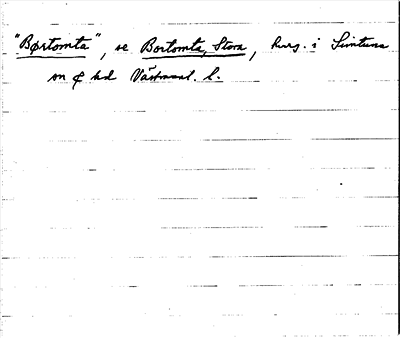 "Børtomta", se Bortomta, Stora, herrg. i Simtuna
sn & hd Västmanl. l.